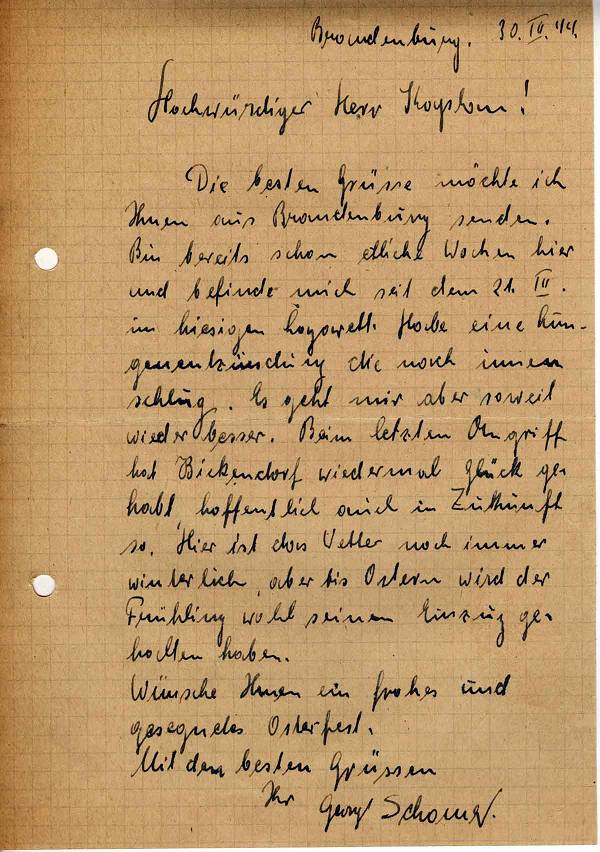 Brandenburg. 30. IV. 44.
Hochwürdiger Herr Kaplan!
Die besten Grüsse möchte ich
Ihnen aus Brandenburg senden.
Bin bereits schon etliche Wochen hier
und befinde mich seit dem 21. IV.
im hiesigen Habe eine Lun-
genentzündung die nach innen
schlug. Es geht mir aber soweit
wieder besser. Beim letzten Angriff
hat Bickendorf wiedermal Glück ge-
habt, hoffentlich auch in Zukunft
so. Hier ist das Wetter noch immer
winterlich, aber bis Ostern wird der
Frühling wohl seinen Einzug ge-
halten haben.
Wünsche Ihnen ein frohes und
gesegnetes Osterfest.
Mit den besten Grüssen
Ihr Georg